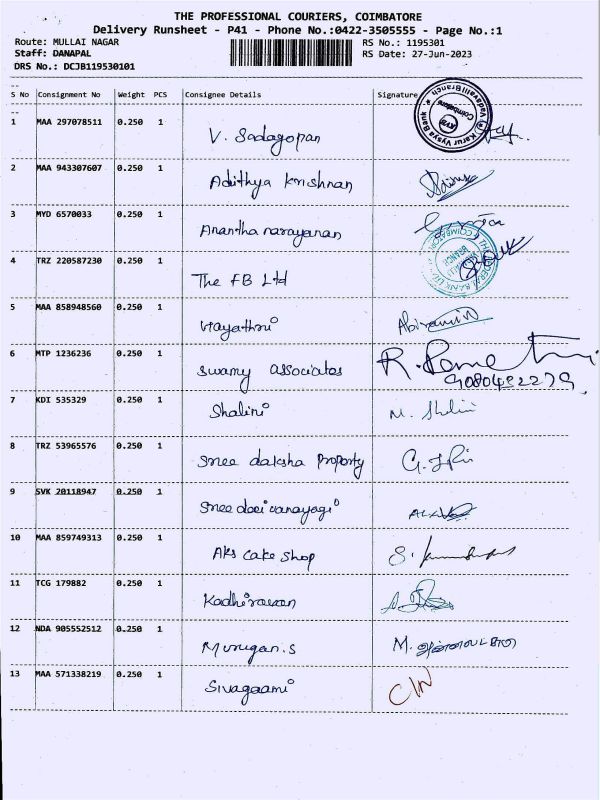 THE PROFESSIONAL COURIERS, COIMBATORE
Delivery Runsheet - P41 - Phone No.:0422-3505555 - Page No.:1
Route: MULLAI NAGAR RS No.: 1195301
Staff: DANAPAL RS Date: 27-Jun-2023
DRS No.: DCJB119530101
S No Consignment No Weight PCS Consignee Details Signature
1 MAA 297078511 0.250 1 V. Sadagopan
Karur Vysya Bank Vadavalli Branch Coimbatore
2 MAA 943307607 0.250 1 Adithya Krishnan
3 MYD 6570033 0.250 1 Anantha narayanan
4 TRZ 220587230 0.250 1 The FB Ltd
5 MAA 858948560 0.250 1 Gayathri Abirami
6 MTP 1236236 0.250 1 Swamy associates
7 KDI 535329 0.250 1 Shalini M. Shalini
8 TRZ 53965576 0.250 1 Sree daksha Property
9 SVK 20118947 0.250 1
10 MAA 859749313 0.250 1 AKS Cake Shop
11 TCG 179882 0.250 1 Kadhiravan
12 NDA 905552512 0.250 1 Murugan.S
13 MAA 571338219 0.250 1 Sivagaami